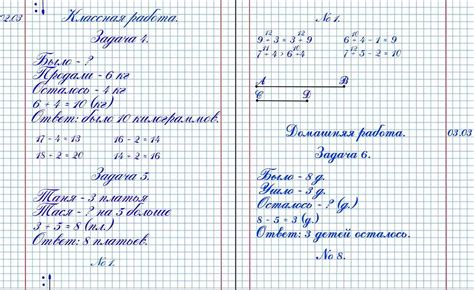 02.03
Классная работа.
Задача 4.
Было - ?
Продали - 6 кг
Осталось - 4 кг
6 + 4 = 10 (кг)
Ответ: было 10 килограммов.
17 - 4 = 13 16 - 2 = 14
18 + 2 = 20 14 + 2 = 16
Задача 5.
Таня - 3 платья
Тася - ? на 5 больше
3 + 5 = 8 (пл.)
Ответ: 8 платьев.
№ 1.
№ 1.
12 12 10
9 + 3 = 3 + 9 6 + 4 - 1 = 9
11 10 12
7 + 4 > 6 + 4 7 + 5 - 2 = 10
А В
С D
Домашняя работа.
03.03
Задача 6.
Было - 8 д.
Ушло - 3 д.
Осталось - ? (д.)
8 - 5 = 3 (д.)
Ответ: 3 детей осталось.
№ 8.